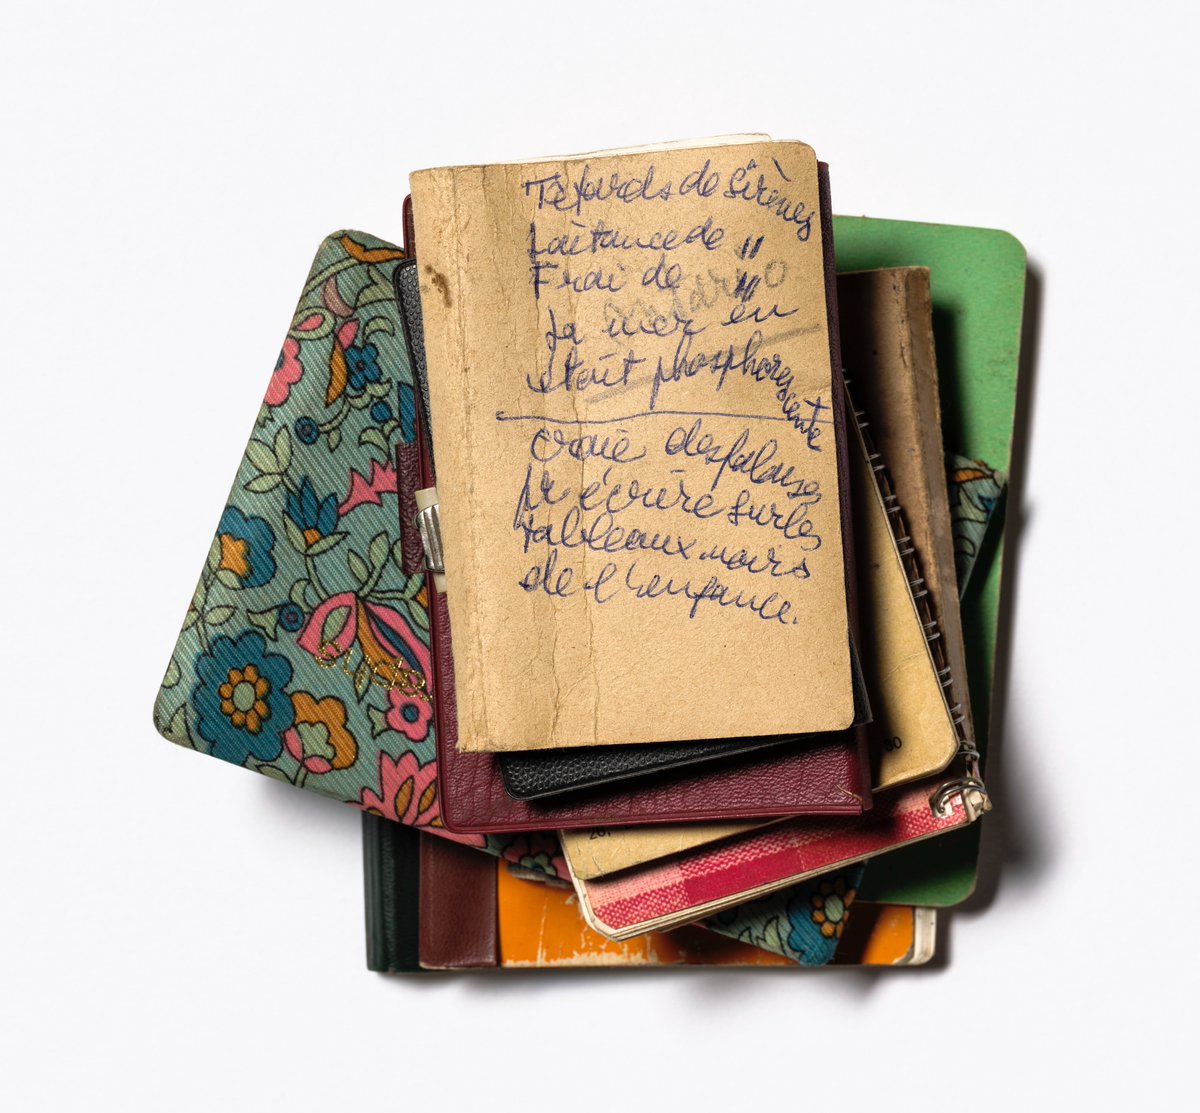 Tétards de Sirènes
Laitance de "
Frai de "
La mer en
était phosphorescente
craie des falaises
pr écrire sur les
tableaux noirs
de l'enfance.
30
20,